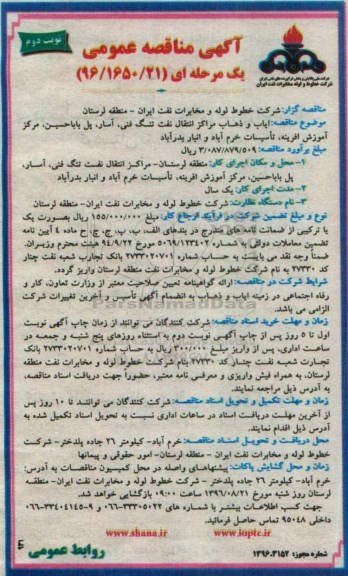 نوبت دوم
آگهی مناقصه عمومی
یک مرحله ای (۹۶/۱۶۵۰/۲۱)
شرکت ملی پالایش و پخش فرآورده های نفتی ایران
شرکت خطوط لوله و مخابرات نفت ایران
مناقصه گزار: شرکت خطوط لوله و مخابرات نفت ایران - منطقه لرستان
موضوع مناقصه: ایاب و ذهاب مراکز انتقال نفت تنگ فنی، آسار، پل باباحسین، مرکز
آموزش افرینه، تأسیسات خرم آباد و انبار بدرآباد
مبلغ برآورد مناقصه: ۳/۰۸۷/۸۷۹/۵۰۹ ریال
۱- محل و مکان اجرای کار: منطقه لرستان- مراکز انتقال نفت تنگ فنی، آسار،
پل باباحسین، مرکز آموزش افرینه، تأسیسات خرم آباد و انبار بدرآباد
۲- مدت اجرای کار: یک سال
۳- نام دستگاه نظارت: شرکت خطوط لوله و مخابرات نفت ایران- منطقه لرستان
نوع و مبلغ تضمین شرکت در فرآیند ارجاع کار: مبلغ ۱۵۵/۰۰۰/۰۰۰ ریال بصورت یک
یا ترکیبی از ضمانت نامه های مندرج در بندهای الف، ب، پ، ج، چ، ح ماده ۴ آیین نامه
تضمین معاملات دولتی به شماره ۵۰۶۵۹/۱۲۳۴۰۲ مورخ ۹۴/۹/۲۲ هیئت محترم وزیران.
ضمناً وجه نقد می بایست به حساب شماره ۲۷۳۳۰۲۰۷۰۱ بانک تجارب شعبه نفت چنار
کد ۲۷۳۳۰ به نام شرکت خطوط لوله و مخابرات نفت منطقه لرستان واریز گردد.
شرایط شرکت در مناقصه: ارائه گواهینامه تعیین صلاحیت معتبر از وزارت تعاون، کار و
رفاه اجتماعی در زمینه ایاب و ذهاب به انضمام آگهی تأسیس و آخرین تغییرات شرکت
الزامی می باشد.
زمان و مهلت خرید اسناد مناقصه: شرکت کنندگان می توانند از زمان چاپ آگهی نوبت
اول تا ۵ روز پس از چاپ آگهی نوبت دوم به استثناء روزهای پنج شنبه و جمعه در
ساعت اداری، پس از واریز مبلغ ۳۰۰/۰۰۰ ریال به حساب شماره ۲۷۳۳۰۲۰۷۰۱ بانک
تجارت شعبه نفت چنار کد ۲۷۳۳۰ بنام شرکت خطوط لوله و مخابرات نفت منطقه
لرستان، به همراه فیش واریزی و معرفی نامه معتبر، حضوراً جهت دریافت اسناد مناقصه،
به آدرس ذیل مراجعه نمایند.
زمان و مهلت تکمیل و تحویل اسناد مناقصه: شرکت کنندگان می توانند تا ۱۰ روز پس
از آخرین مهلت دریافت اسناد در ساعات اداری نسبت به تحویل اسناد تکمیل شده به
آدرس ذیل اقدام نمایند.
محل دریافت و تحویل اسناد مناقصه: خرم آباد- کیلومتر ۲۶ جاده پلدختر- شرکت
خطوط لوله و مخابرات نفت ایران - منطقه لرستان- امور حقوقی و پیمانها
زمان و محل گشایش پاکات: پیشنهادهای واصله در محل کمیسیون مناقصات به آدرس:
خرم آباد- کیلومتر ۲۶ جاده پلدختر - شرکت خطوط لوله و مخابرات نفت ایران- منطقه
لرستان روز شنبه مورخ ۱۳۹۶/۰۸/۲۱ ساعت ۰۹:۰۰ بازگشایی خواهد شد.
جهت کسب اطلاعات بیشتر با شماره های ۳۳۳۰۵۰۲۲-۰۶۶ و ۹-۳۳۴۰۴۱۴۵-۰۶۶
داخلی ۹۵۰۴۸ تماس حاصل فرمائید.
www.shana.ir www.ioptc.ir
شماره مجوز: ۱۳۹۶.۳۱۵۲
روابط عمومی
ParsNamadData